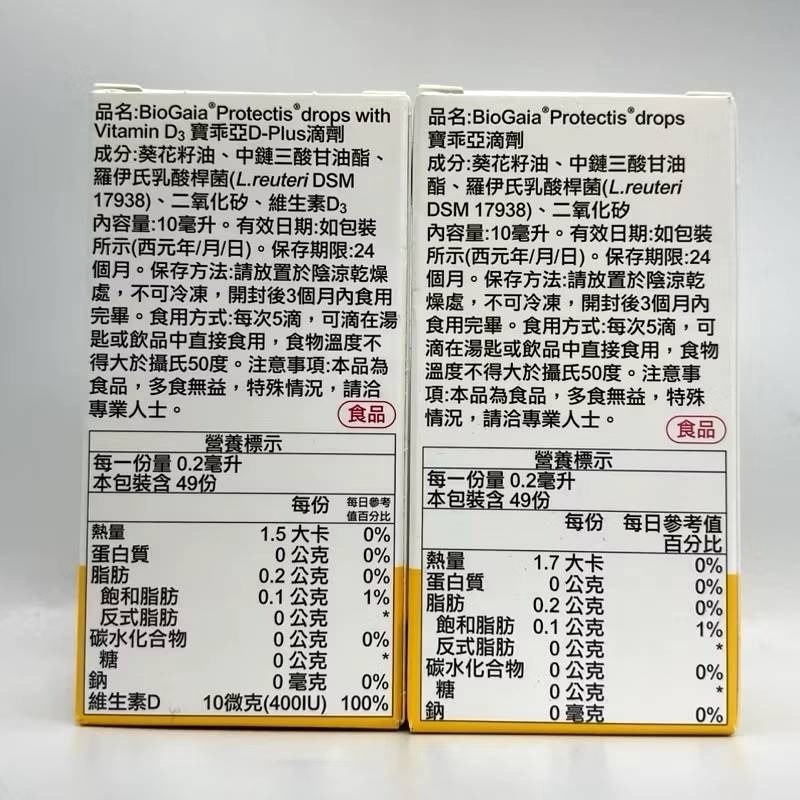 品名:BioGaia®Protectis®drops with
Vitamin D₃ 寶乖亞D-Plus滴劑
成分:葵花籽油、中鏈三酸甘油酯、
羅伊氏乳酸桿菌(L.reuteri DSM
17938)、二氧化矽、維生素D₃
內容量:10毫升。有效日期:如包裝
所示(西元年/月/日)。保存期限:24
個月。保存方法:請放置於陰涼乾燥
處，不可冷凍，開封後3個月內食用
完畢。食用方式:每次5滴，可滴在湯
匙或飲品中直接食用，食物溫度不
得大於攝氏50度。注意事項:本品為
食品，多食無益，特殊情況，請洽
專業人士。
食品
營養標示
每一份量 0.2毫升
本包裝含 49份
每份 每日參考
值百分比
熱量 1.5 大卡 0%
蛋白質 0 公克 0%
脂肪 0.2 公克 0%
飽和脂肪 0.1 公克 1%
反式脂肪 0 公克 *
碳水化合物 0 公克 0%
糖 0 公克 *
鈉 0 毫克 0%
維生素D 10微克(400IU) 100%
品名:BioGaia®Protectis®drops
寶乖亞滴劑
成分:葵花籽油、中鏈三酸甘油
酯、羅伊氏乳酸桿菌(L.reuteri
DSM 17938)、二氧化矽
內容量:10毫升。有效日期:如包裝
所示(西元年/月/日)。保存期限:24
個月。保存方法:請放置於陰涼乾
燥處，不可冷凍，開封後3個月內
食用完畢。食用方式:每次5滴，可
滴在湯匙或飲品中直接食用，食物
溫度不得大於攝氏50度。注意事
項:本品為食品，多食無益，特殊
情況，請洽專業人士。
食品
營養標示
每一份量 0.2毫升
本包裝含 49份
每份 每日參考值
百分比
熱量 1.7 大卡 0%
蛋白質 0 公克 0%
脂肪 0.2 公克 0%
飽和脂肪 0.1 公克 1%
反式脂肪 0 公克 *
碳水化合物 0 公克 0%
糖 0 公克 *
鈉 0 毫克 0%